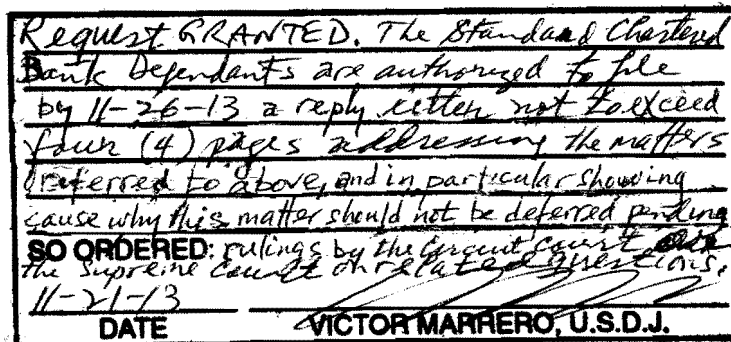 Request GRANTED. The Standard Chartered
Bank Defendants are authorized to file
by 11-26-13 a reply letter not to exceed
four (4) pages addressing the matters
referred to above, and in particular showing
cause why this matter should not be deferred pending
SO ORDERED: rulings by the Circuit Court
the Supreme Court on related questions.
11-21-13
DATE VICTOR MARRERO, U.S.D.J.